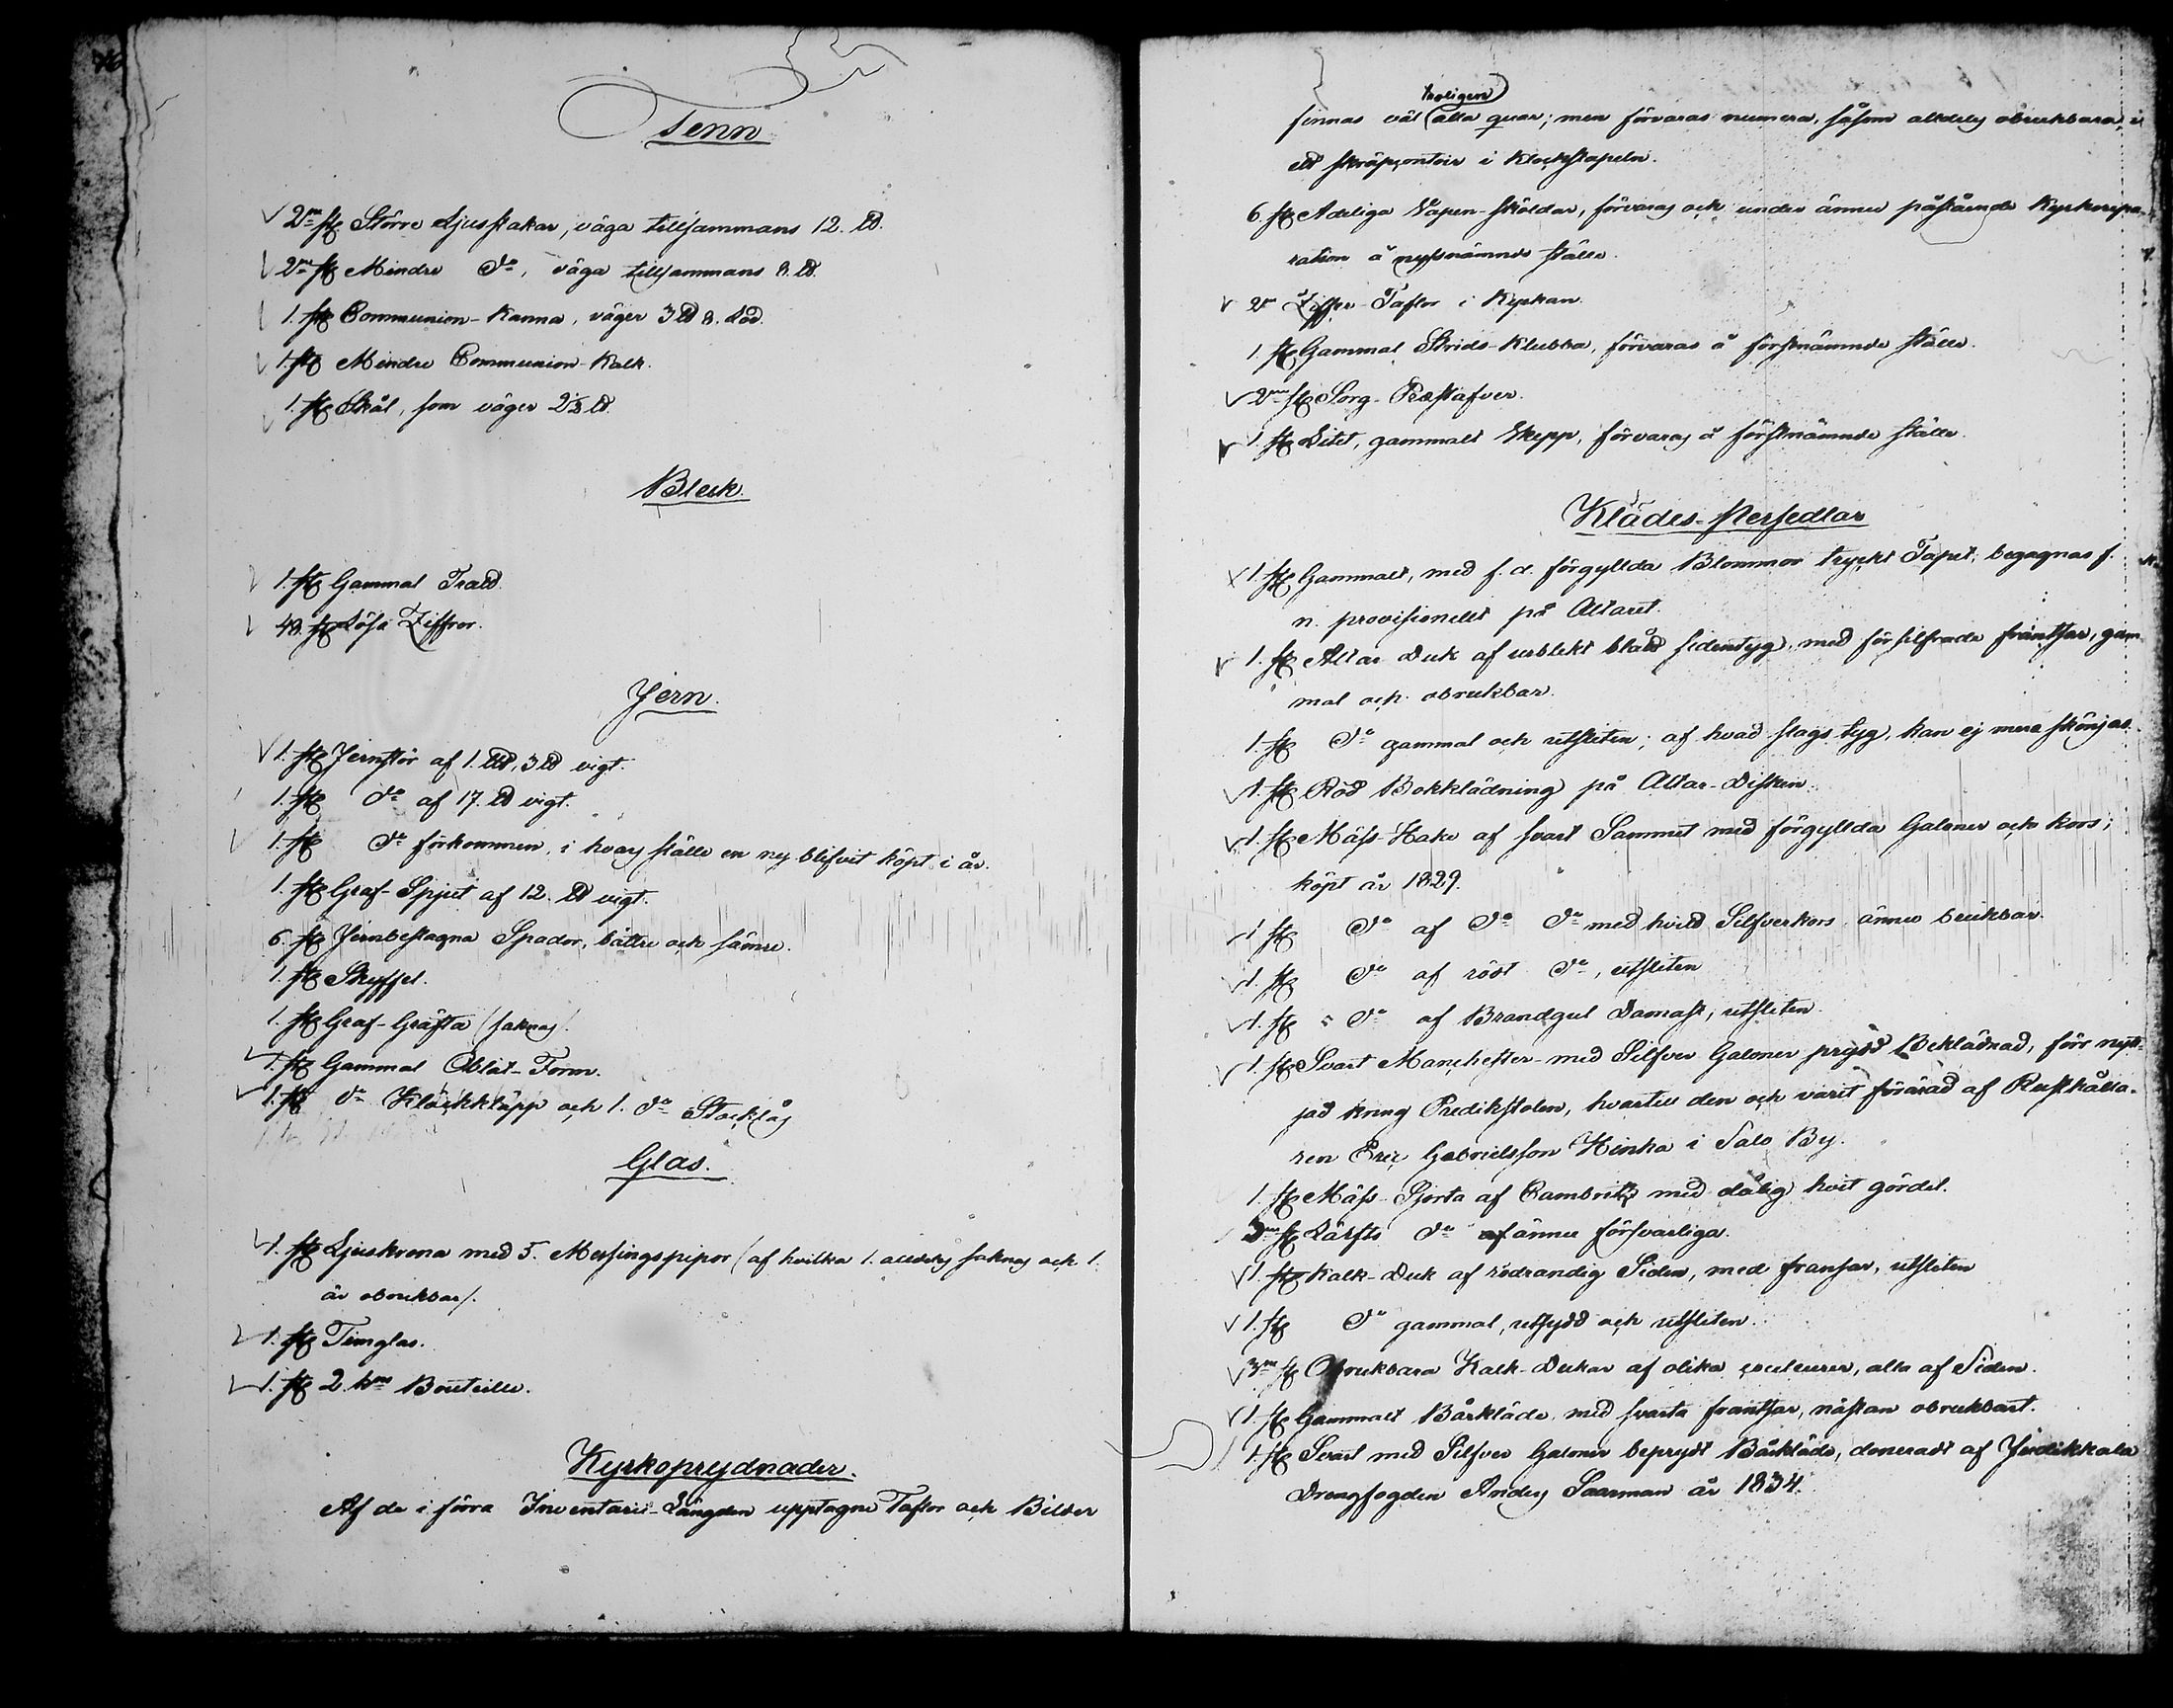 Tenn
2ne st Större Ljusstakar, väga tillsammans 12. ℔.
2ne st Mindre do, väga tillsammans 8. ℔.
1. st Communion-Kanna, väger 3 ℔ 8. Lod.
1. st Mindre Communion-Kalk.
1. st Skål, som väger 2½ ℔.
Bleck.
1. st Gammal Tratt.
48. st Lösa Ziffror.
Jern.
1. st Jernstör af 1. L℔, 3 ℔ vigt.
1. st do af 17. ℔ vigt.
1. st do förkommen, i hvars ställe en ny blifvit köpt i år.
1. st Graf-Spjut af 12. ℔ vigt.
6. st Jernbeslagna Spador, bättre och sämre.
1. st Skyffel.
1. st Graf-Gräfta /saknas/.
1. st Gammal Oblat-Form.
1. st do Klockkläpp och 1. do Stocklås
Glas.
1. st Ljuskrona med 5. Messingspipor /af hvilka 1. alldeles saknas och 1.
är obrukbar/.
1. st Timglas.
1. st 2. kns Bouteille.
Kyrkoprydnader.
Af de i förra Inventarii-Längden upptagne Taflor och Bilder
troligen
finnas väl alla quar; men förvaras numera, såsom alldeles obrukbara, i
ett skräpcontoir i Klockstapeln.
6. st Adeliga Vapen-sköldar, förvaras och under ännu påstående Kyrkorepa-
ration å nyssnämnde ställe.
2ne Ziffer-Taflor i Kyrkan.
1. st Gammal Strids-Klubba, förvaras å förstnämnde ställe.
2ne st Sorg-Præstafver.
1. st Litet, gammalt Skepp, förvaras å förstnämnde ställe.
Klädes-Persedlar
1. st Gammalt, med f. d. förgyllda Blommor tryckt Tapet, begagnas f.
n. provisionelt på Altaret.
1. st Altar Duk af urblekt blått sidentyg, med försilfrade frantsar, gam-
mal och obrukbar.
1. st do gammal och utsliten; af hvad slags tyg, kan ej mera skönjas.
1. st Röd Bokklädning på Altar-Disken.
1. st Mäss-Hake af svart Sammet med förgyllda Galoner och kors;
köpt år 1829.
1. st do af do do med hvitt Silfverkors ännu brukbar.
1. st do af rödt do, utsliten
1. st do af Brandgul Damast, utsliten.
1. st Svart Manchester- med Silfver Galoner prydd Beklädnad, för nytt-
jad kring Predikstolen, hvartill den och varit förärad af Rusthålla-
ren Eric Gabrielsson Hinka i Salo By.
1. st Mäss-Sjorta af Cambrik med dålig hvit gördel.
3ne st Lärfts do ännu försvarliga.
1. st Kalk-Duk af rödrandig Siden, med fransar, utsliten
1. st do gammal, utsydd och utsliten.
3ne st Obrukbara Kalk-Dukar af olika couleurer, alla af Siden.
1. st Gammalt Bårkläde med svarta frantsar, nästan obrukbart.
1. st Svart med Silfver Galoner beprydt Bårkläde, doneradt af Jindikkala
Drengfogden Anders Saarman år 1834.